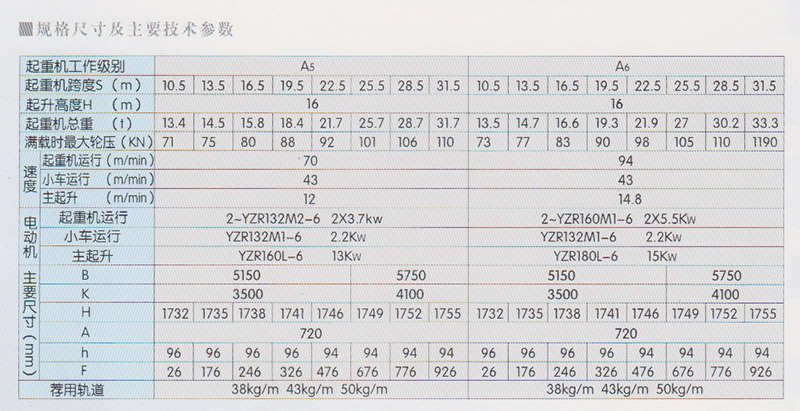 规格尺寸及主要技术参数
起重机工作级别 A5 A6
起重机跨度S (m) 10.5 13.5 16.5 19.5 22.5 25.5 28.5 31.5 10.5 13.5 16.5 19.5 22.5 25.5 28.5 31.5
起升高度H (m) 16 16
起重机总重 (t) 13.4 14.5 15.8 18.4 21.7 25.7 28.7 31.7 13.5 14.7 16.6 19.3 21.9 27 30.2 33.3
满载时最大轮压(KN) 71 75 80 88 92 101 106 110 73 77 83 90 98 105 110 1190
速度 起重机运行 (m/min) 70 94
小车运行 (m/min) 43 43
主起升 (m/min) 12 14.8
电动机 起重机运行 2~YZR132M2-6 2X3.7kw 2~YZR160M1-6 2X5.5Kw
小车运行 YZR132M1-6 2.2Kw YZR132M1-6 2.2Kw
主起升 YZR160L-6 13Kw YZR180L-6 15Kw
主要尺寸(mm) B 5150 5750 5150 5750
K 3500 4100 3500 4100
H 1732 1735 1738 1741 1746 1749 1752 1755 1732 1735 1738 1741 1746 1749 1752 1755
A 720 720
h 96 96 94 94 94 94 94 94 96 96 94 94 94 94 94 94
F 26 176 246 326 476 676 776 926 26 176 246 326 476 676 776 926
荐用轨道 38kg/m 43kg/m 50kg/m 38kg/m 43kg/m 50kg/m